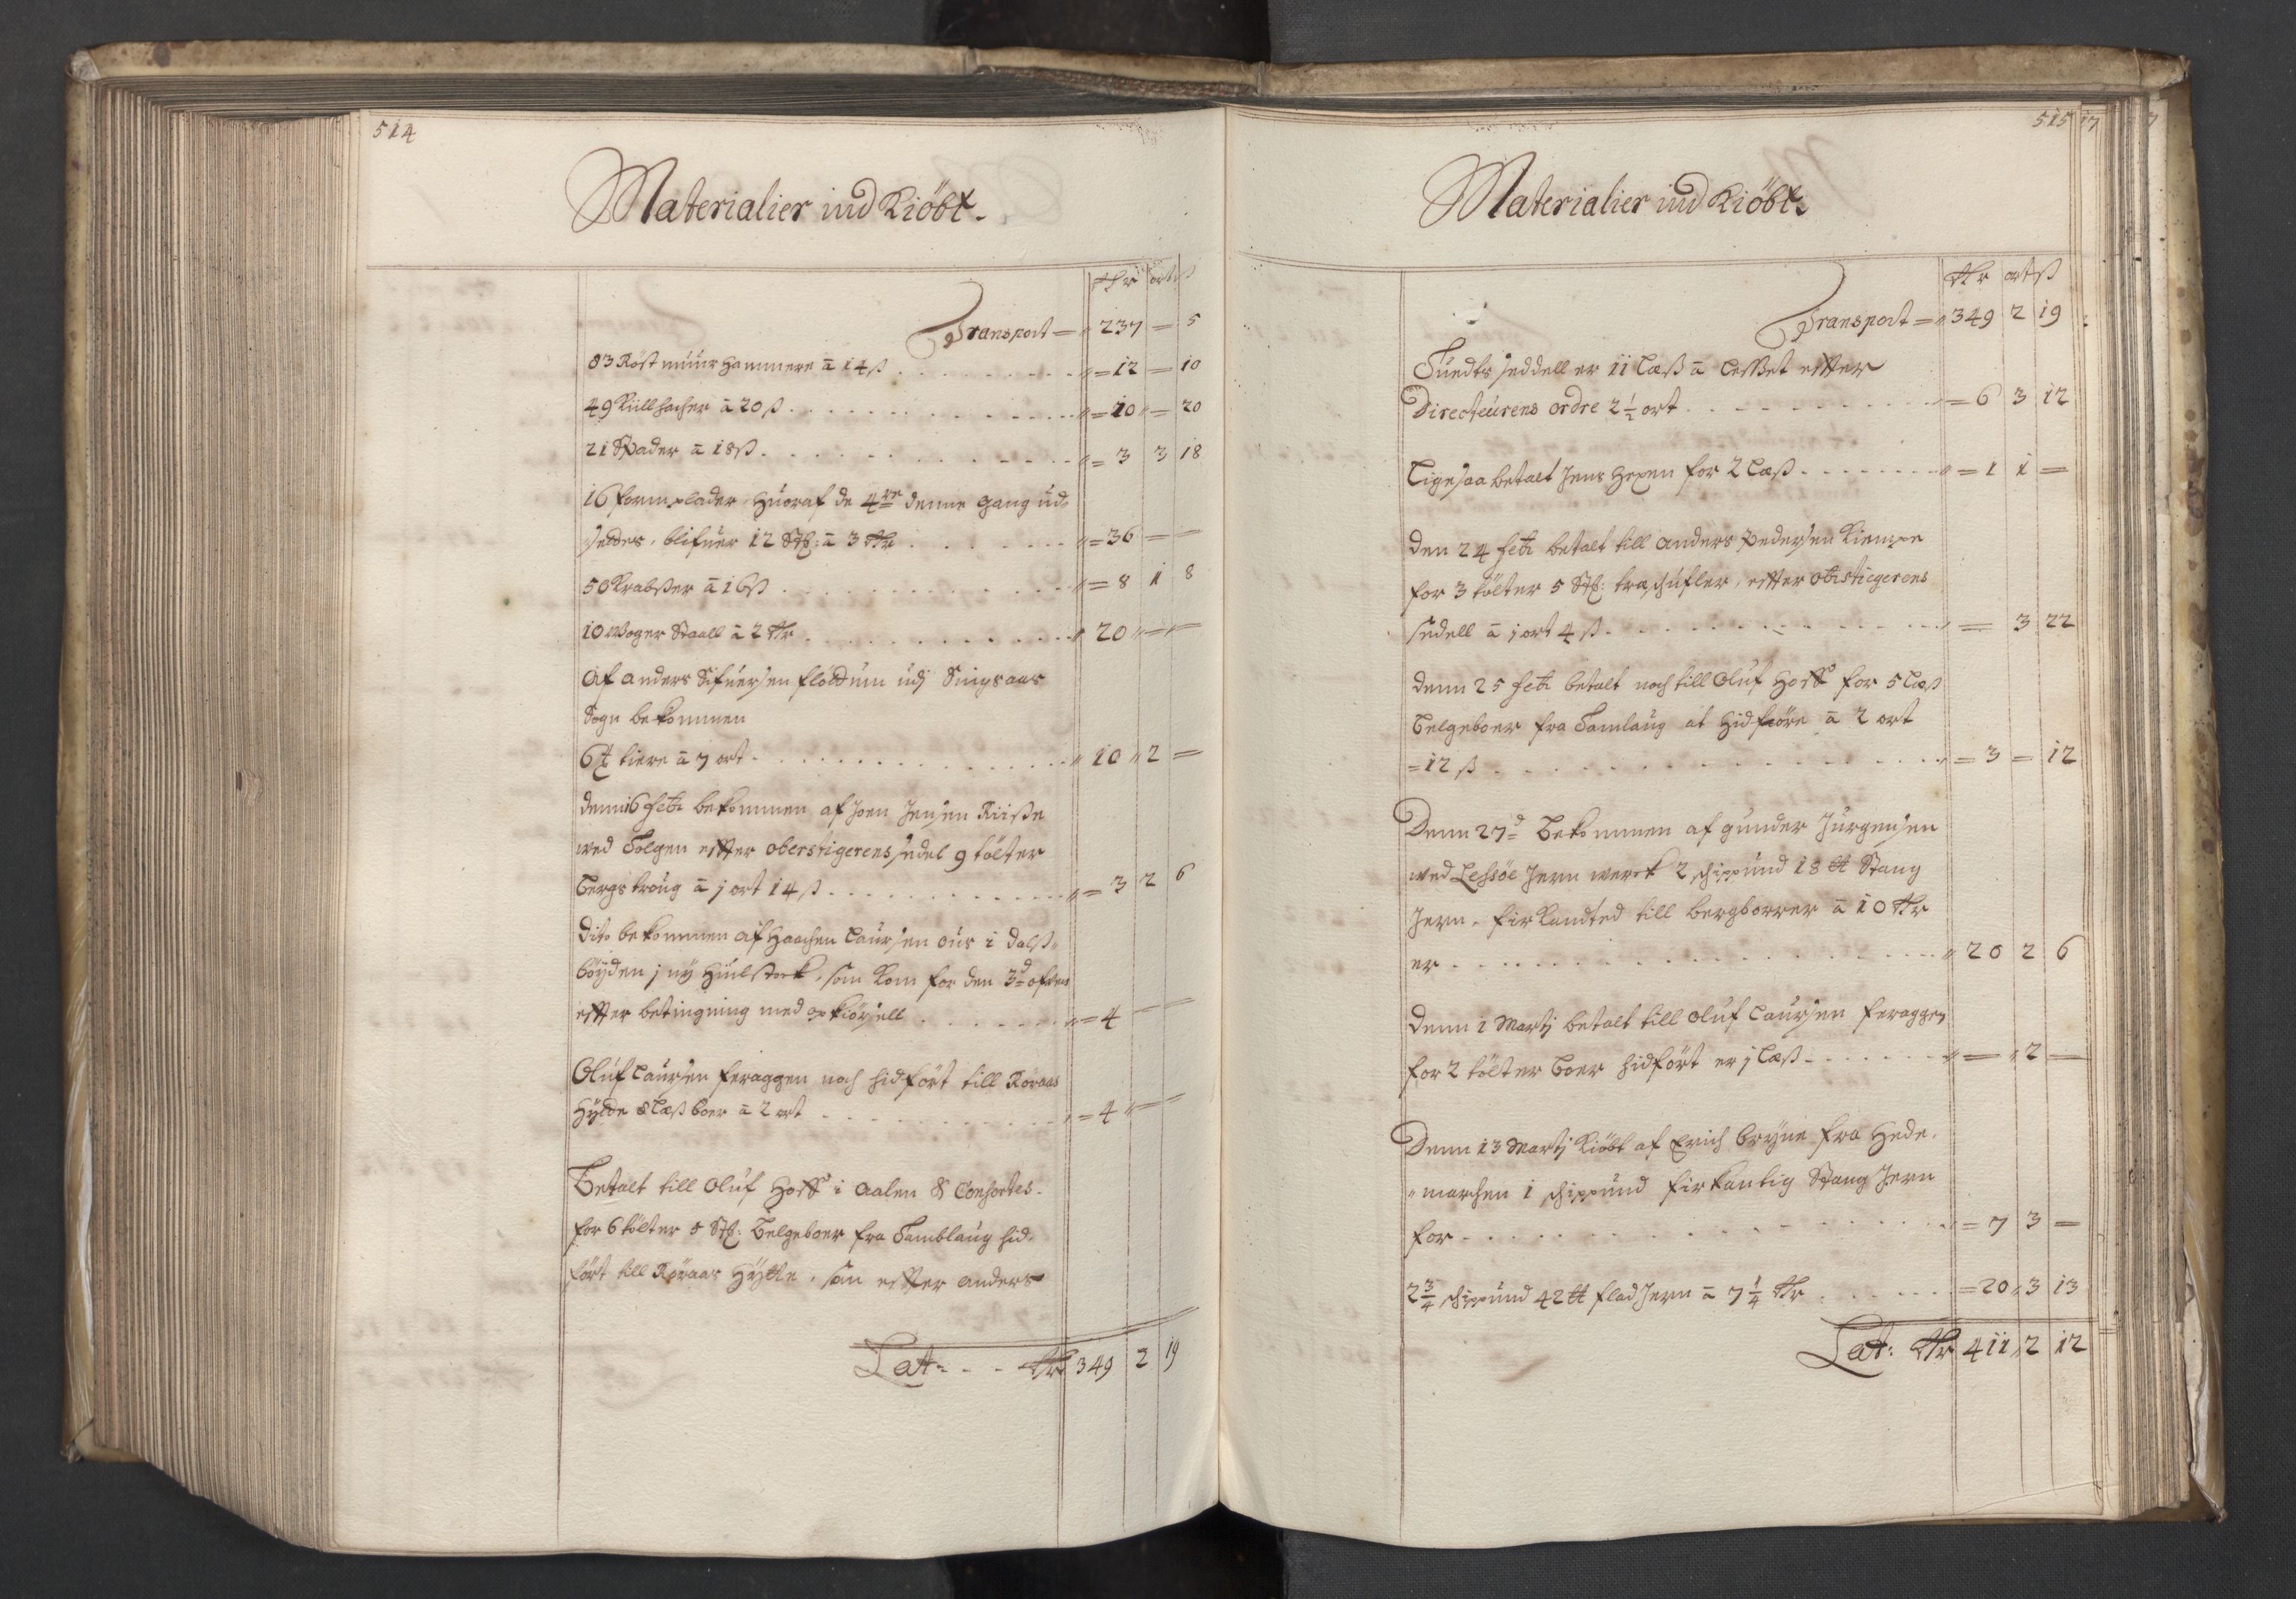 514
Materialier ind Kiöbt.
tkr ort ß
Transport = " 237 = 5
83 Röst muur Hammere à 14 ß " = 12 = 10
49 Kullhacher à 20 ß " = 10 " = 20
21 Spader à 18 ß " = 3 3 18
16 formplader, huoraf de 4re denne gang ud-
settes, blifuer 12 Stk: à 3 Rdr " = 36 — —
50 Krabßer à 16 ß " = 8 1 8
10 Woger Staall à 2 Rdr " 20 " — " —
Af Anders Sifuersen Floedum udj Singsaas
Sogn bekommen
6 t tiere à 7 ort " 10 " 2 =
denn 16 febr bekommen af Joen Jensen Riiße
ved Tolgen effter oberstigerens sedel 9 tölter
bergstroug à j ort 14 ß " = 3 2 6
Dito bekommen af Haachen Laursen Ous i Dalß-
böyden j ny Hiulstock, som kom for den 3d ofuen
effter betingning med opkiörsell " = 4 — —
Oluf Laursen feraggen noch hidfört till Röraas
Hytte 8 Læß boer à 2 ort " = 4 " — —
Betalt till Oluf Hoff i Aalen & Consortes.
for 6 tölter 8 Stk: Belgeboer fra Tamblaug hid-
fört till Röraas Hytte, som effter Anders
Lat: - - Rdr 349 2 19
515
Materialier ind Kiöbt.
Rdr ort ß
Transport = " 349 2 19
Tuedts seddell er 11 Læß à Leßet effter
Directeurens ordre 2 1/2 ort " = 6 3 12
Ligesaa betalt Jens Hexen for 2 Læß " = 1 1 =
den 24 febr betalt till Anders Pedersen Kiempe
for 3 tölter 5 Stk: træschufler, effter obrstiegerens
sedell à j ort 4 ß " = 3 22
denn 25 febr betalt noch till Oluf Hoff for 5 Læß
Belgeboer fra Tamlaug at hidföre à 2 ort
= 12 ß " = 3 = 12
Denn 27d Bekommen af Gunder Jurgensen
ved Lessöe Jern werck 2 schippund 18 tt Stang
Jern, firkandted till bergborrer à 10 Rdr
er " 20 2 6
denn 1 Martj betalt till Oluf Laursen feraggen
for 2 tölter boer hidfört er j Læß " = " 2 —
Denn 13 Martj Kiöbt af Erich Bryne fra Hede-
"marchen 1 schippund firkantig Stang Jern
for " = 7 3 =
2 3/4 schippund 42 tt flad Jern à 7 1/4 Rdr = 20 " 3 13
Lat: Rdr 411 " 2 12